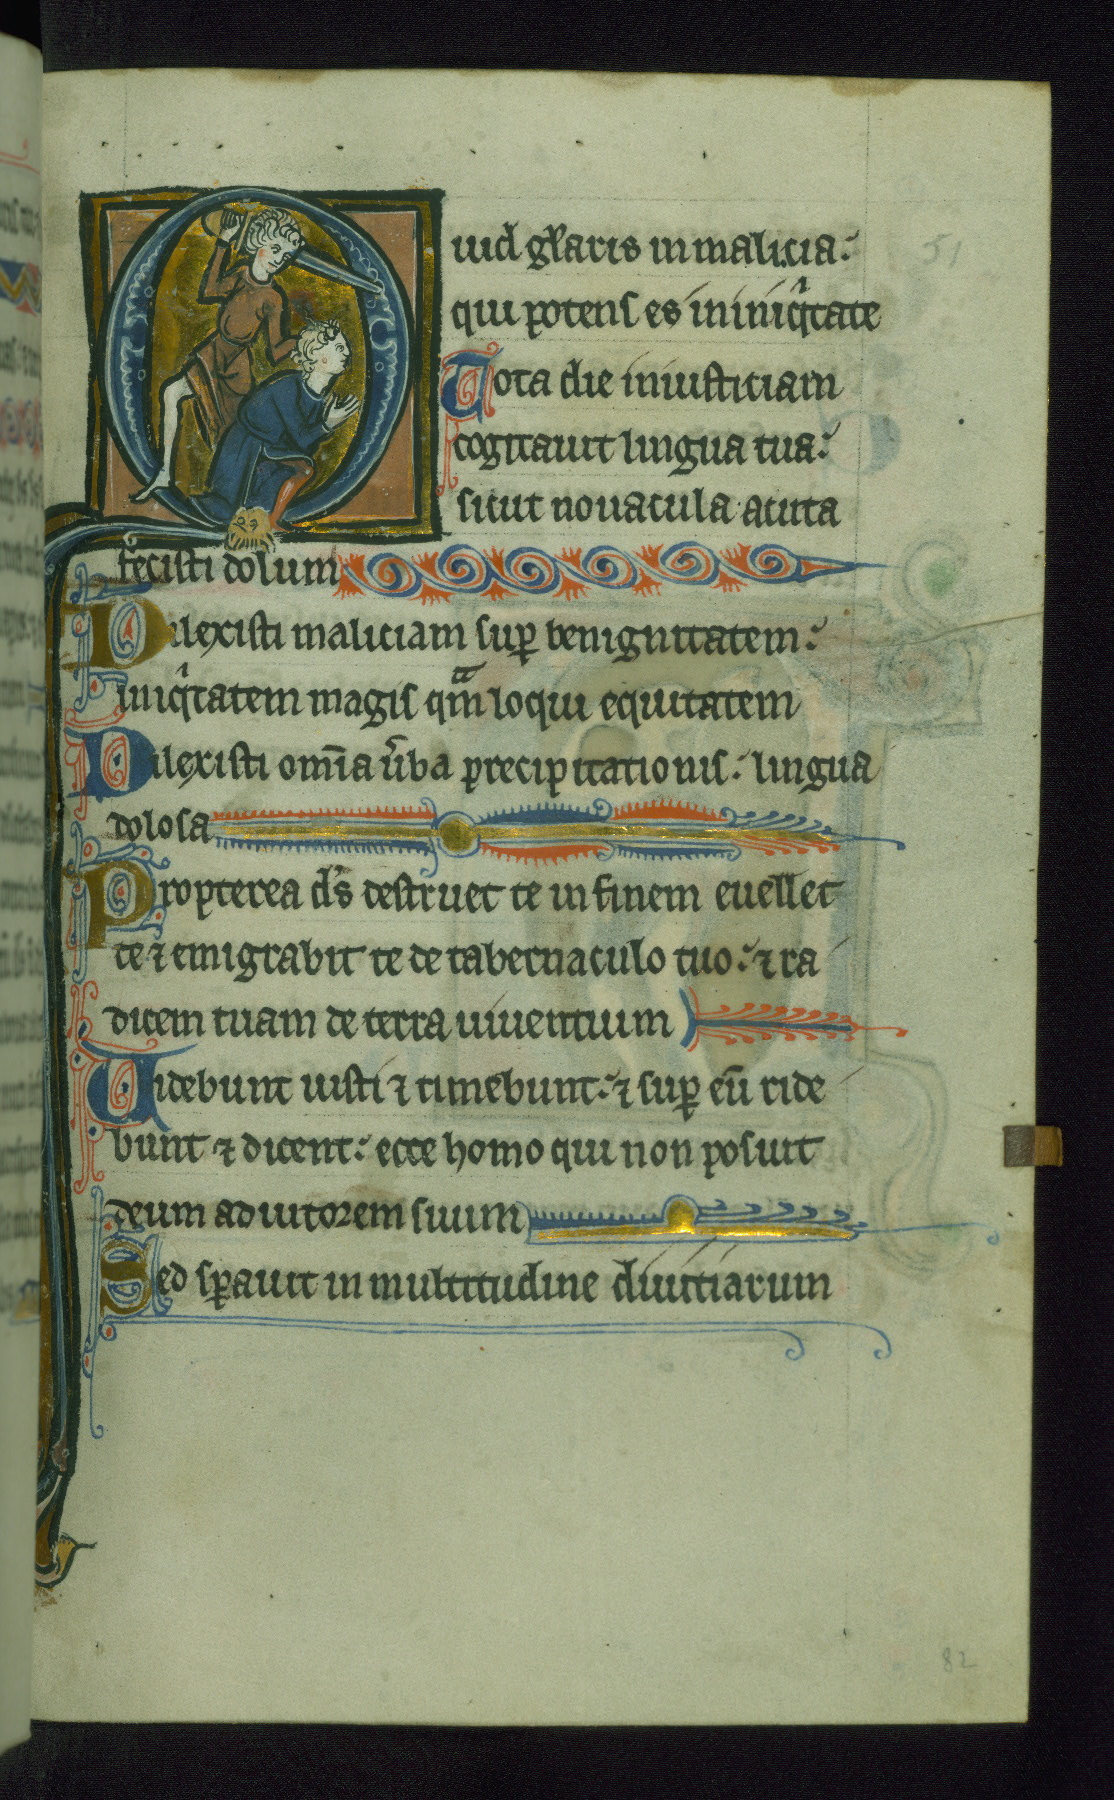 Quid gl̃aris in malicia:
qui potens es in iniq̇tate
Tota die iniusticiam
cogitauit lingua tua:
sicut nouacula acuta
fecisti dolum
Dilexisti maliciam sup̱ benignitatem:
iniq̇tatem magis qm̃ loqui equitatem
Dilexisti om̃ia ũba precipitationis: lingua
dolosa
Propterea ds̃ destruet te in finem euellet
te ⁊ emigrabit te de tabernaculo tuo: ⁊ ra
dicem tuam de terra uiuentium
Uidebunt iusti ⁊ timebunt: ⁊ sup̱ eũ ride
bunt ⁊ dicent: ecce homo qui non posuit
deum adiutorem suum
Sed sp̱auit in multitudine diuitiarum
51
82